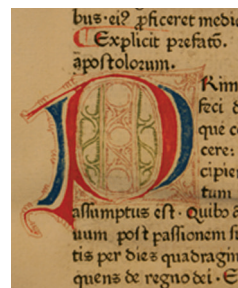 bus·ei? ꝓficeret medi
Explicit prefatō.
apostolorum.
PRim
feci d
que c
cere:
cipien
tum
assumptus est· Quibō
uum post passionem s
tis per dies quadragin
quens de regno dei· E